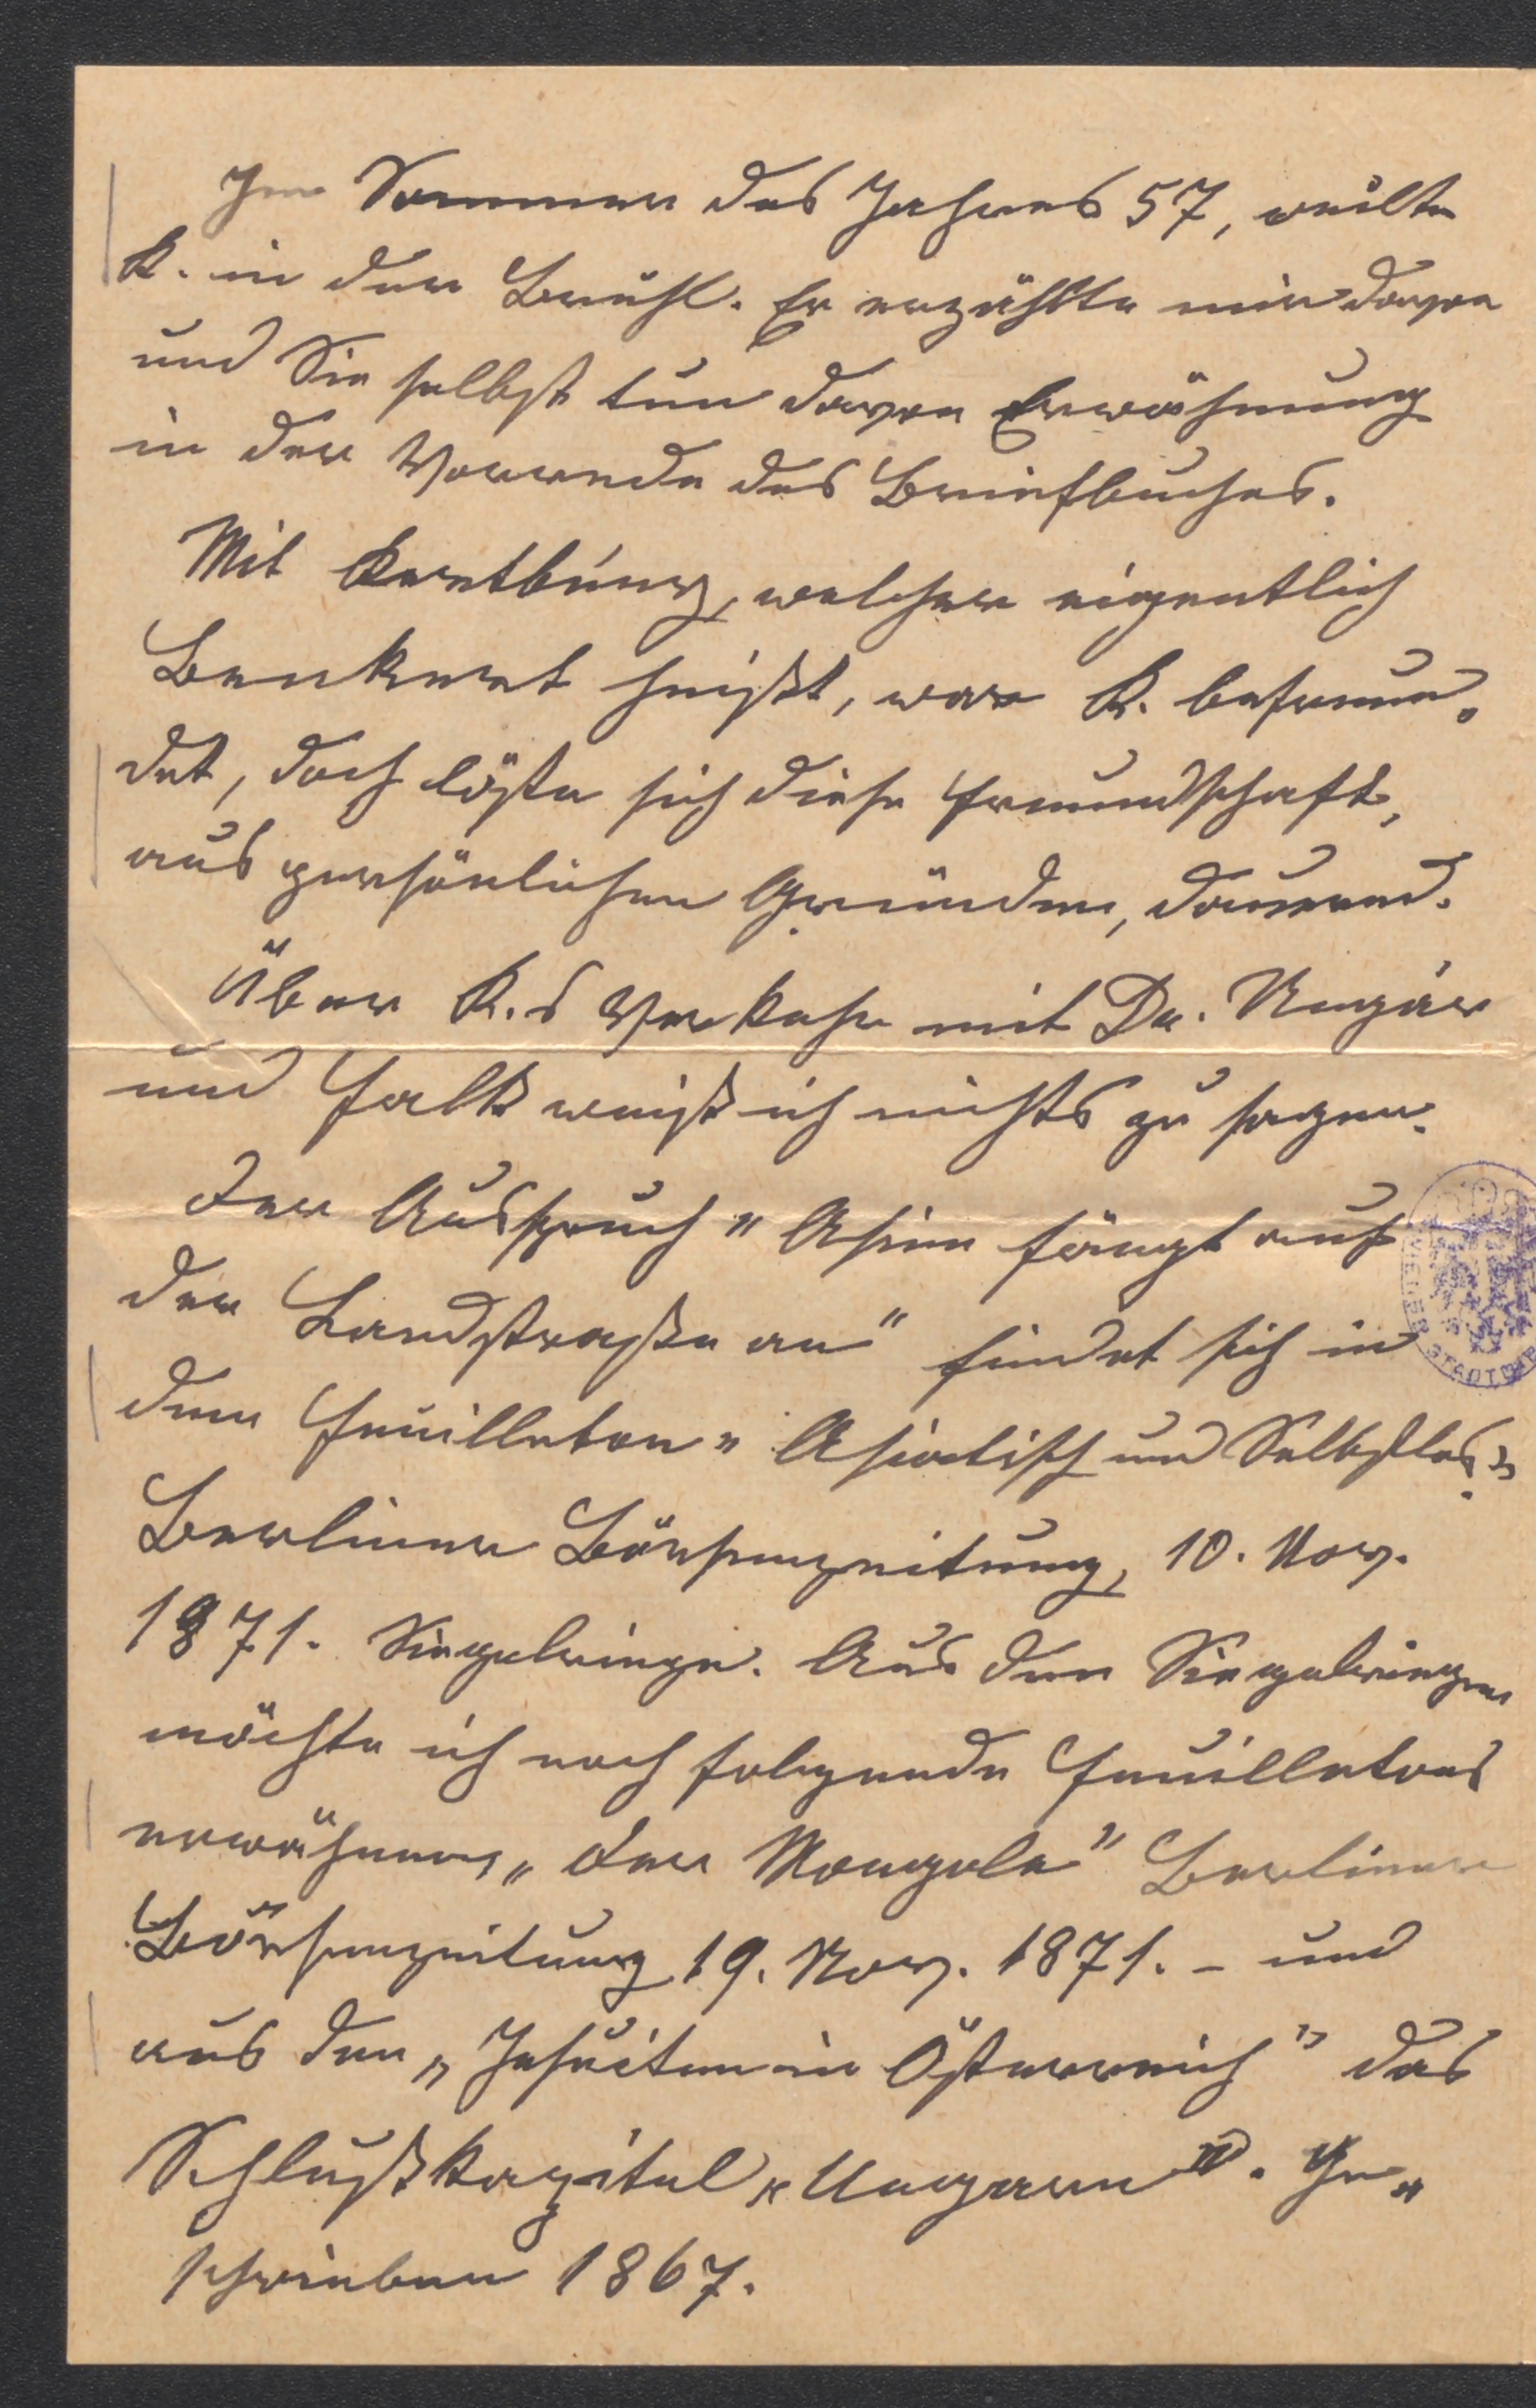 Im Sommer des Jahres 57, weilte
K. in der Brühl. Er erzählte mir davon
und Sie selbst tun davon Erwähnung
in der Vorrede des Briefbuches.
Mit Kertbény, welcher eigentlich
Benkert heißt, war K. befreun„
det, doch löste sich diese Freundschaft,
aus persönlichen Gründen, dauernd.
Über K.s Verkehr mit Dr. Ungár
und Falk weiß ich nichts zu sagen.
Der Ausspruch „Asien fängt auf
der Landstraße an“ findet sich in
dem Feuilleton „Asiatisch und Selbstlos“
Berliner Börsenzeitung, 10. Nov.
1871. Siegelringe. Aus den Siegelringen
möchte ich noch folgende Feuilletons
erwähnen, „Der Mongole“ Berliner
Börsenzeitung 19. Nov. 1871. – und
aus den „Jesuiten in Österreich“ das
Schlußkapitel „Ungarn“. Ge„
schrieben 1867.
WIENER STADTBIB